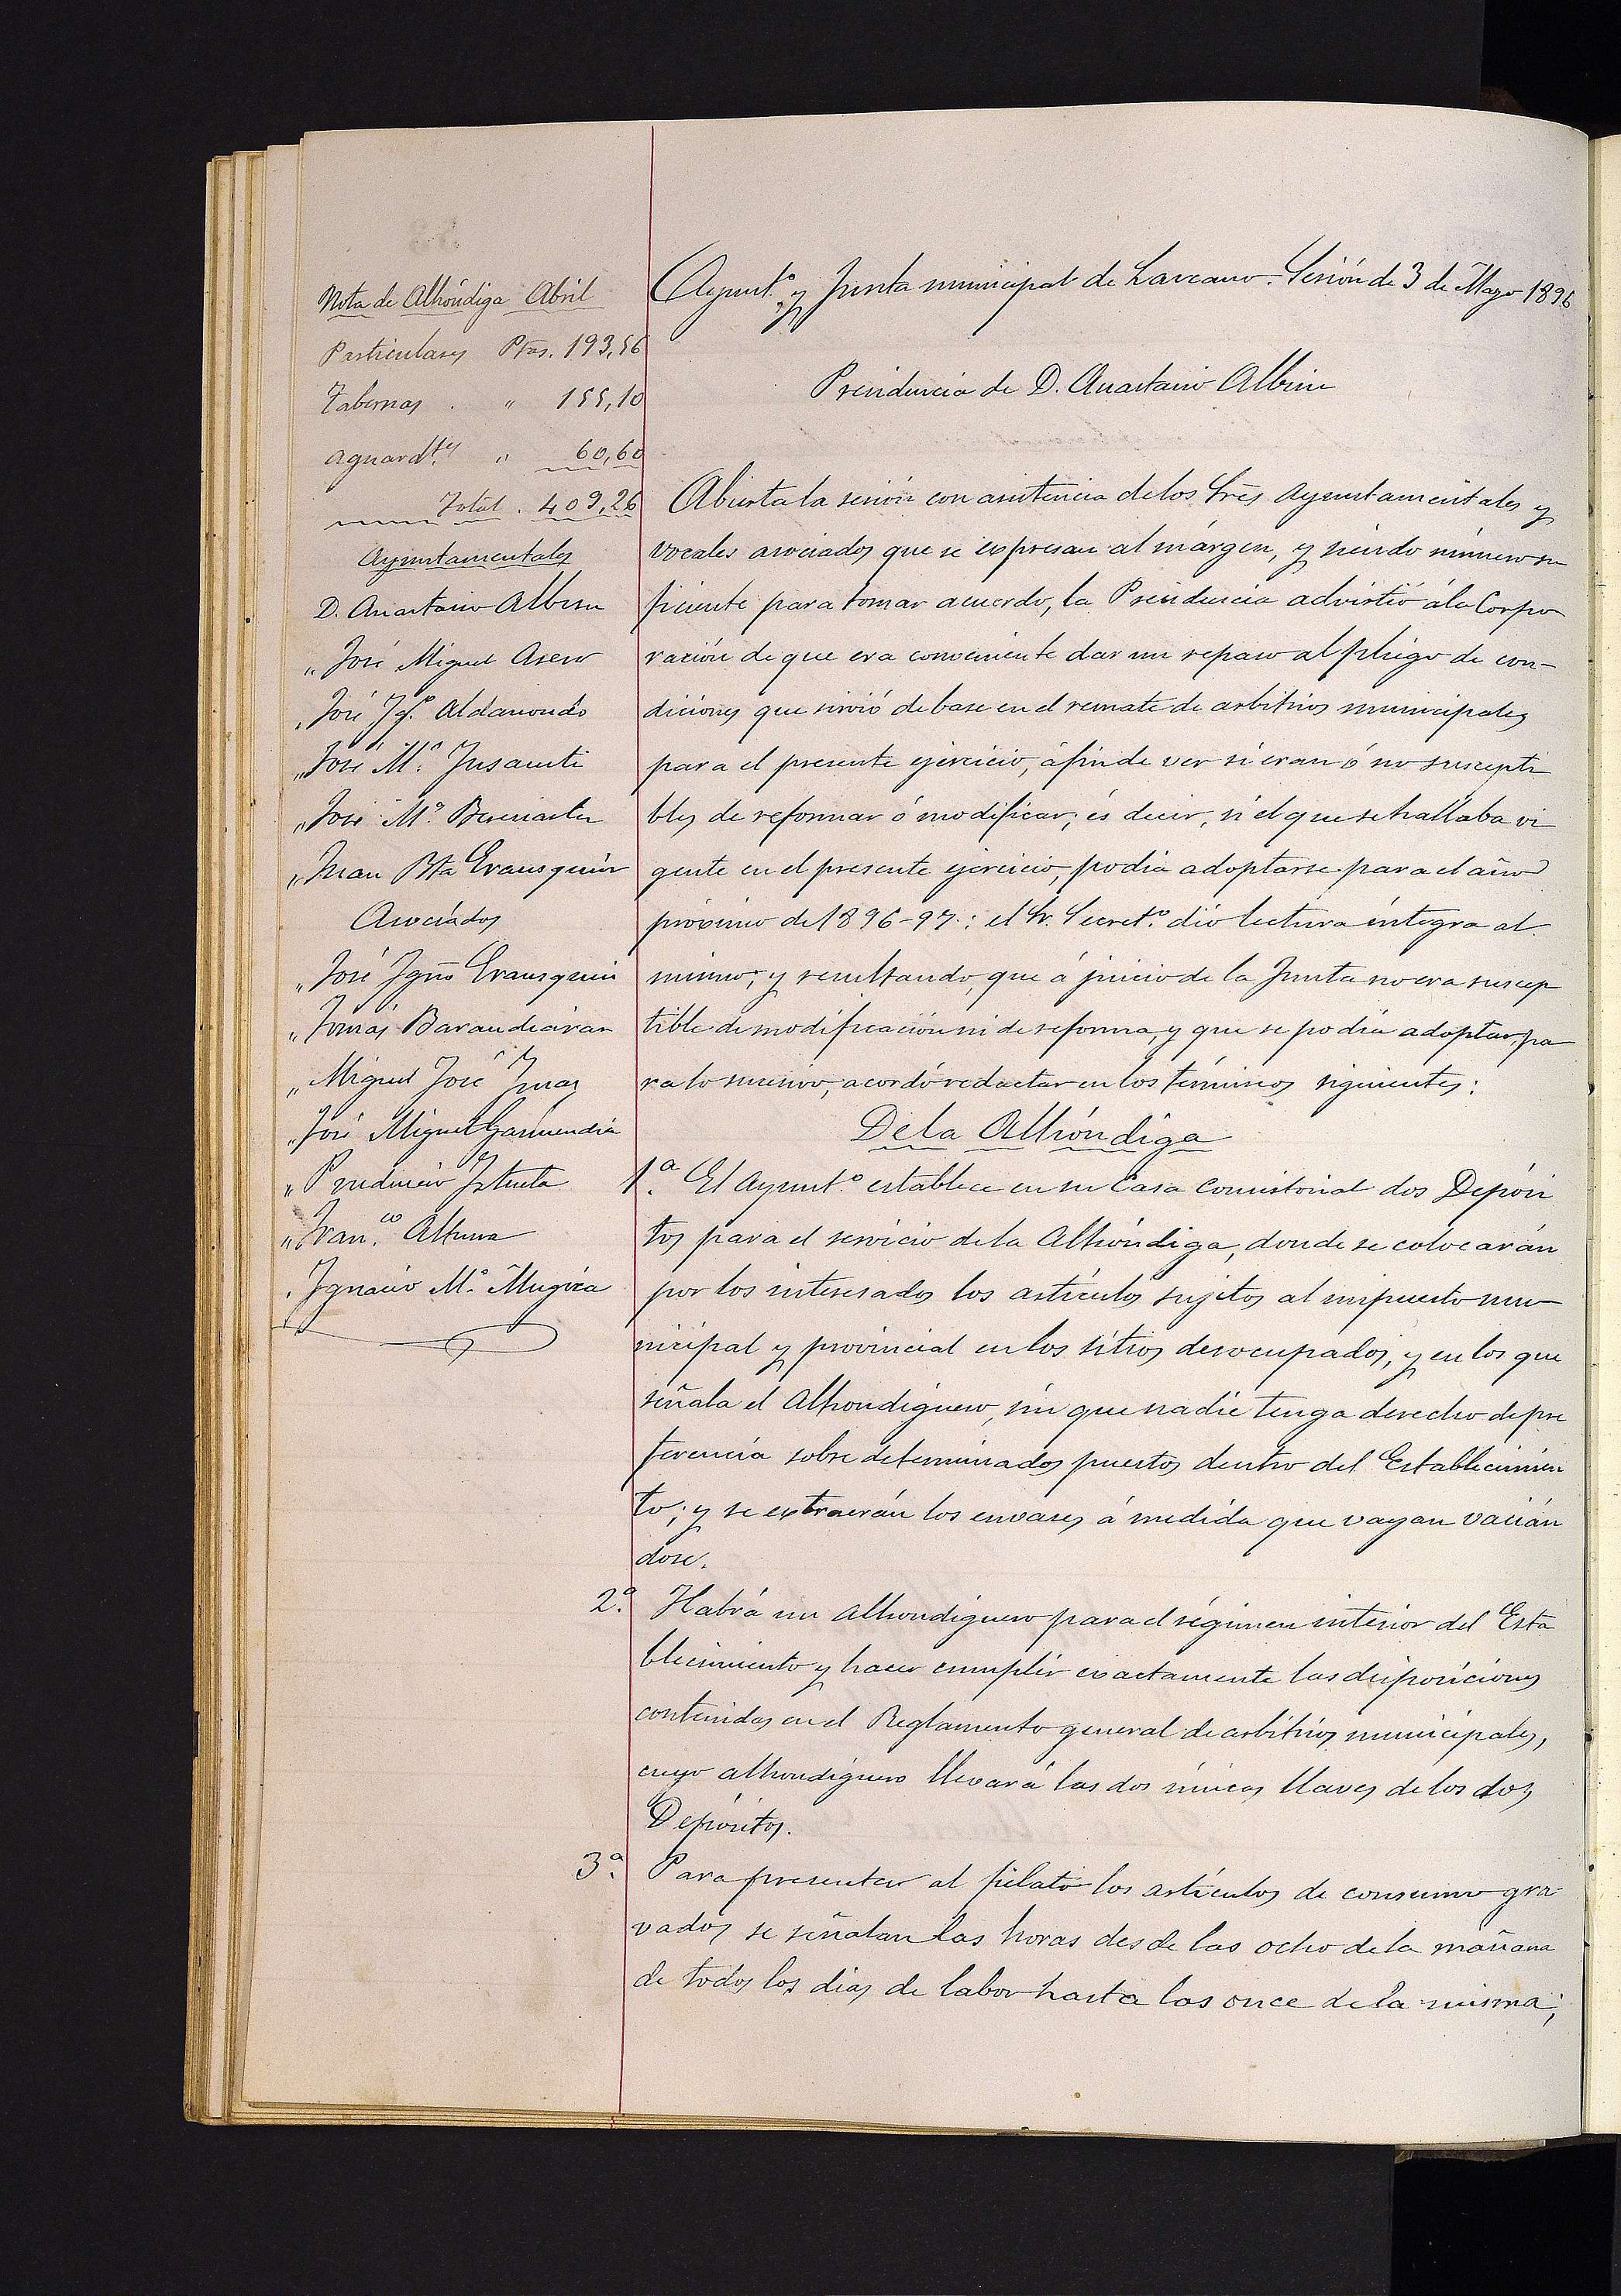 Nota de Alhóndiga Abril
Particulares Ptas. 193,56
Tabernas . " 155,10
aguardtes " 60,60
Total . 409,26
Ayuntamentales
D. Anastasio Albisu
" José Miguel Asero
" José Igº Aldanondo
" José Mª Insausti
" José Mª Berasarte
" Juan Bta Erausquin
Asociados
" José Igno Erausquin
" Tomás Barandiaran
" Miguel José
" José Miguel Garmendia
" Prudencio Iztueta
" Franco Altuna
" Ignacio Mª Mugica
Ayuntº y Junta municipal de Lazcano. Sesión de 3 de Mayo 1896
Presidencia de D. Anastasio Albisu
Abierta la sesión con asistencia de los Sres Ayuntamentales y
vocales asociados que se expresan al márgen, y siendo número su
ficiente para tomar acuerdo, la Presidencia advirtió á la Corpo
ración de que era conveniente dar un repaso al pliego de con-
diciones que sirvió de base en el remate de arbitrios municipales
para el presente ejercicio, áfin de ver si eran ó no suscepti
bles de reformar ó modificar; és decir, si el que se hallaba vi
gente en el presente ejercicio, podia adoptarse para el año
próximo de 1896-97.: el Sr. Secretº dió lectura integra al
mismo; y resultando, que á juicio de la Junta no era suscep
tible de modificación ni de reforma, y que se podia adoptar pa
ra lo sucesivo, acordó redactar en los términos siguientes:
De la Alhóndiga
1ª. El Ayuntº establece en su Casa Consistorial dos Depósi
tos para el servicio de la Alhóndiga, donde se colocarán
por los interesados los artículos sujetos al impuesto mu
nicipal y provincial en los sitios desocupados, y en los que
señala el Alhondiguero, sin que nadie tenga derecho de pre
ferencia sobre determinados puestos dentro del Establecimien
to; y se extraerán los envases á medida que vayan vacián
dose.
2ª. Habrá un alhondiguero para el régimen interior del Esta
blecimiento y hacer cumplir exactamente las disposiciones
contenidas en el Reglamento general de arbitrios municipales,
cuyo alhondiguero llevará las dos únicas llaves de los dos
Depósitos.
3ª. Para presentar al fielato los artículos de consumo gra
vados se señalan las horas desde las ocho de la mañana
de todos los dias de labor hasta las once de la misma;